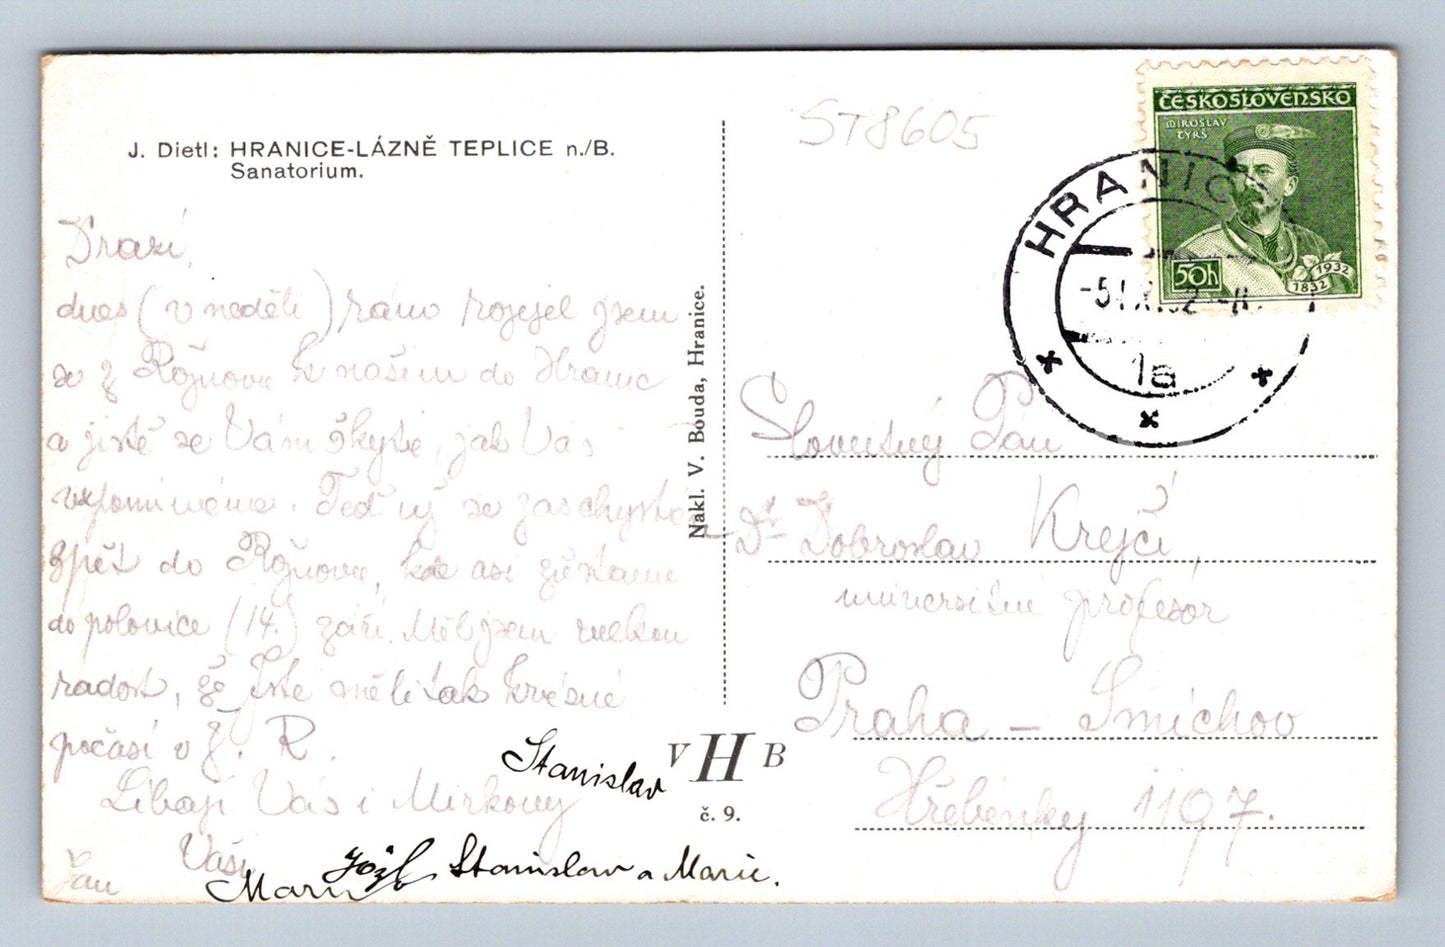 J. Dietl: HRANICE-LÁZNĚ TEPLICE n./B.
Sanatorium.
ST8605
ČESKOSLOVENSKO
MIROSLAV
TYRŠ
50h
1932
1832
HRANIC
1a
Drazí,
dnes (v neděli) ráno rozjel jsem
se z Rožnova k našim do Hranic
a jistě se Vám, jak Vás
vzpomínáme. Teď už se zas chystá
zpět do Rožnova, kde asi zůstanu
do polovice (14.) září. Měl jsem velkou
radost, že jste měli tak krásné
počasí v Ž. R.
Líbají Vás i Mirkovy
Vaši
Jan
Stanislav
Marie
Stanislav a Marie.
Nakl. V. Bouda, Hranice.
VHB
č. 9.
Slovutný Pan
Dr Dobroslav Krejčí,
universitní profesor
Praha – Smíchov
Hřebenky 1197.